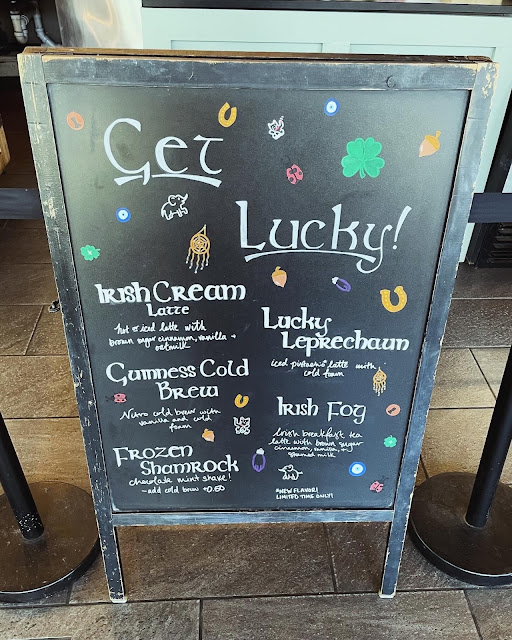 Get
Lucky!
Irish Cream
Latte
hot or iced latte with
brown sugar cinnamon, vanilla +
oatmilk
Guinness Cold
Brew
Nitro cold brew with
vanilla and cold
foam
Frozen
Shamrock
chocolate mint shake!
-add cold brew +0.50
Lucky
Leprechaun
iced pistachio latte with
cold foam
Irish Fog
Irish breakfast tea
latte with brown sugar
cinnamon, vanilla, +
steamed milk
*NEW FLAVOR!
LIMITED TIME ONLY!